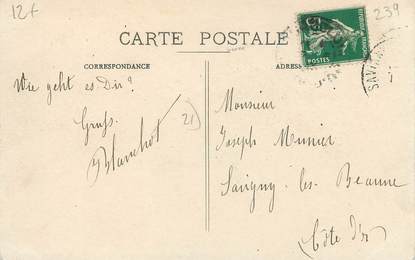 12f
239
CARTE POSTALE
CORRESPONDANCE
ADRES
POSTES
Wie geht es Dir?
Gruss.
Blanchot
21)
Monsieur
Joseph Meunier
Savigny-les-Beaune
(Côte d'Or)